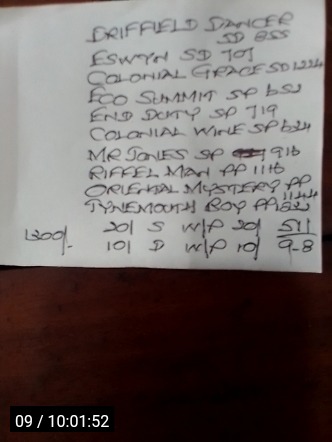 DRIFFIELD DANCER
SD 855
ESWYN SD 701
COLONIAL GRACE SD 1224
ECO SUMMIT SP 652
END DUTY SP 719
COLONIAL WINE SP 624
MR JONES SP 916
RIFFEL MAN PP 1116
ORIENTAL MYSTERY PP
1144
TYNEMOUTH BOY PP
1300/- 20/ S W/P 20/ 511
10/ D W/P 10/ 9-8
09 / 10:01:52